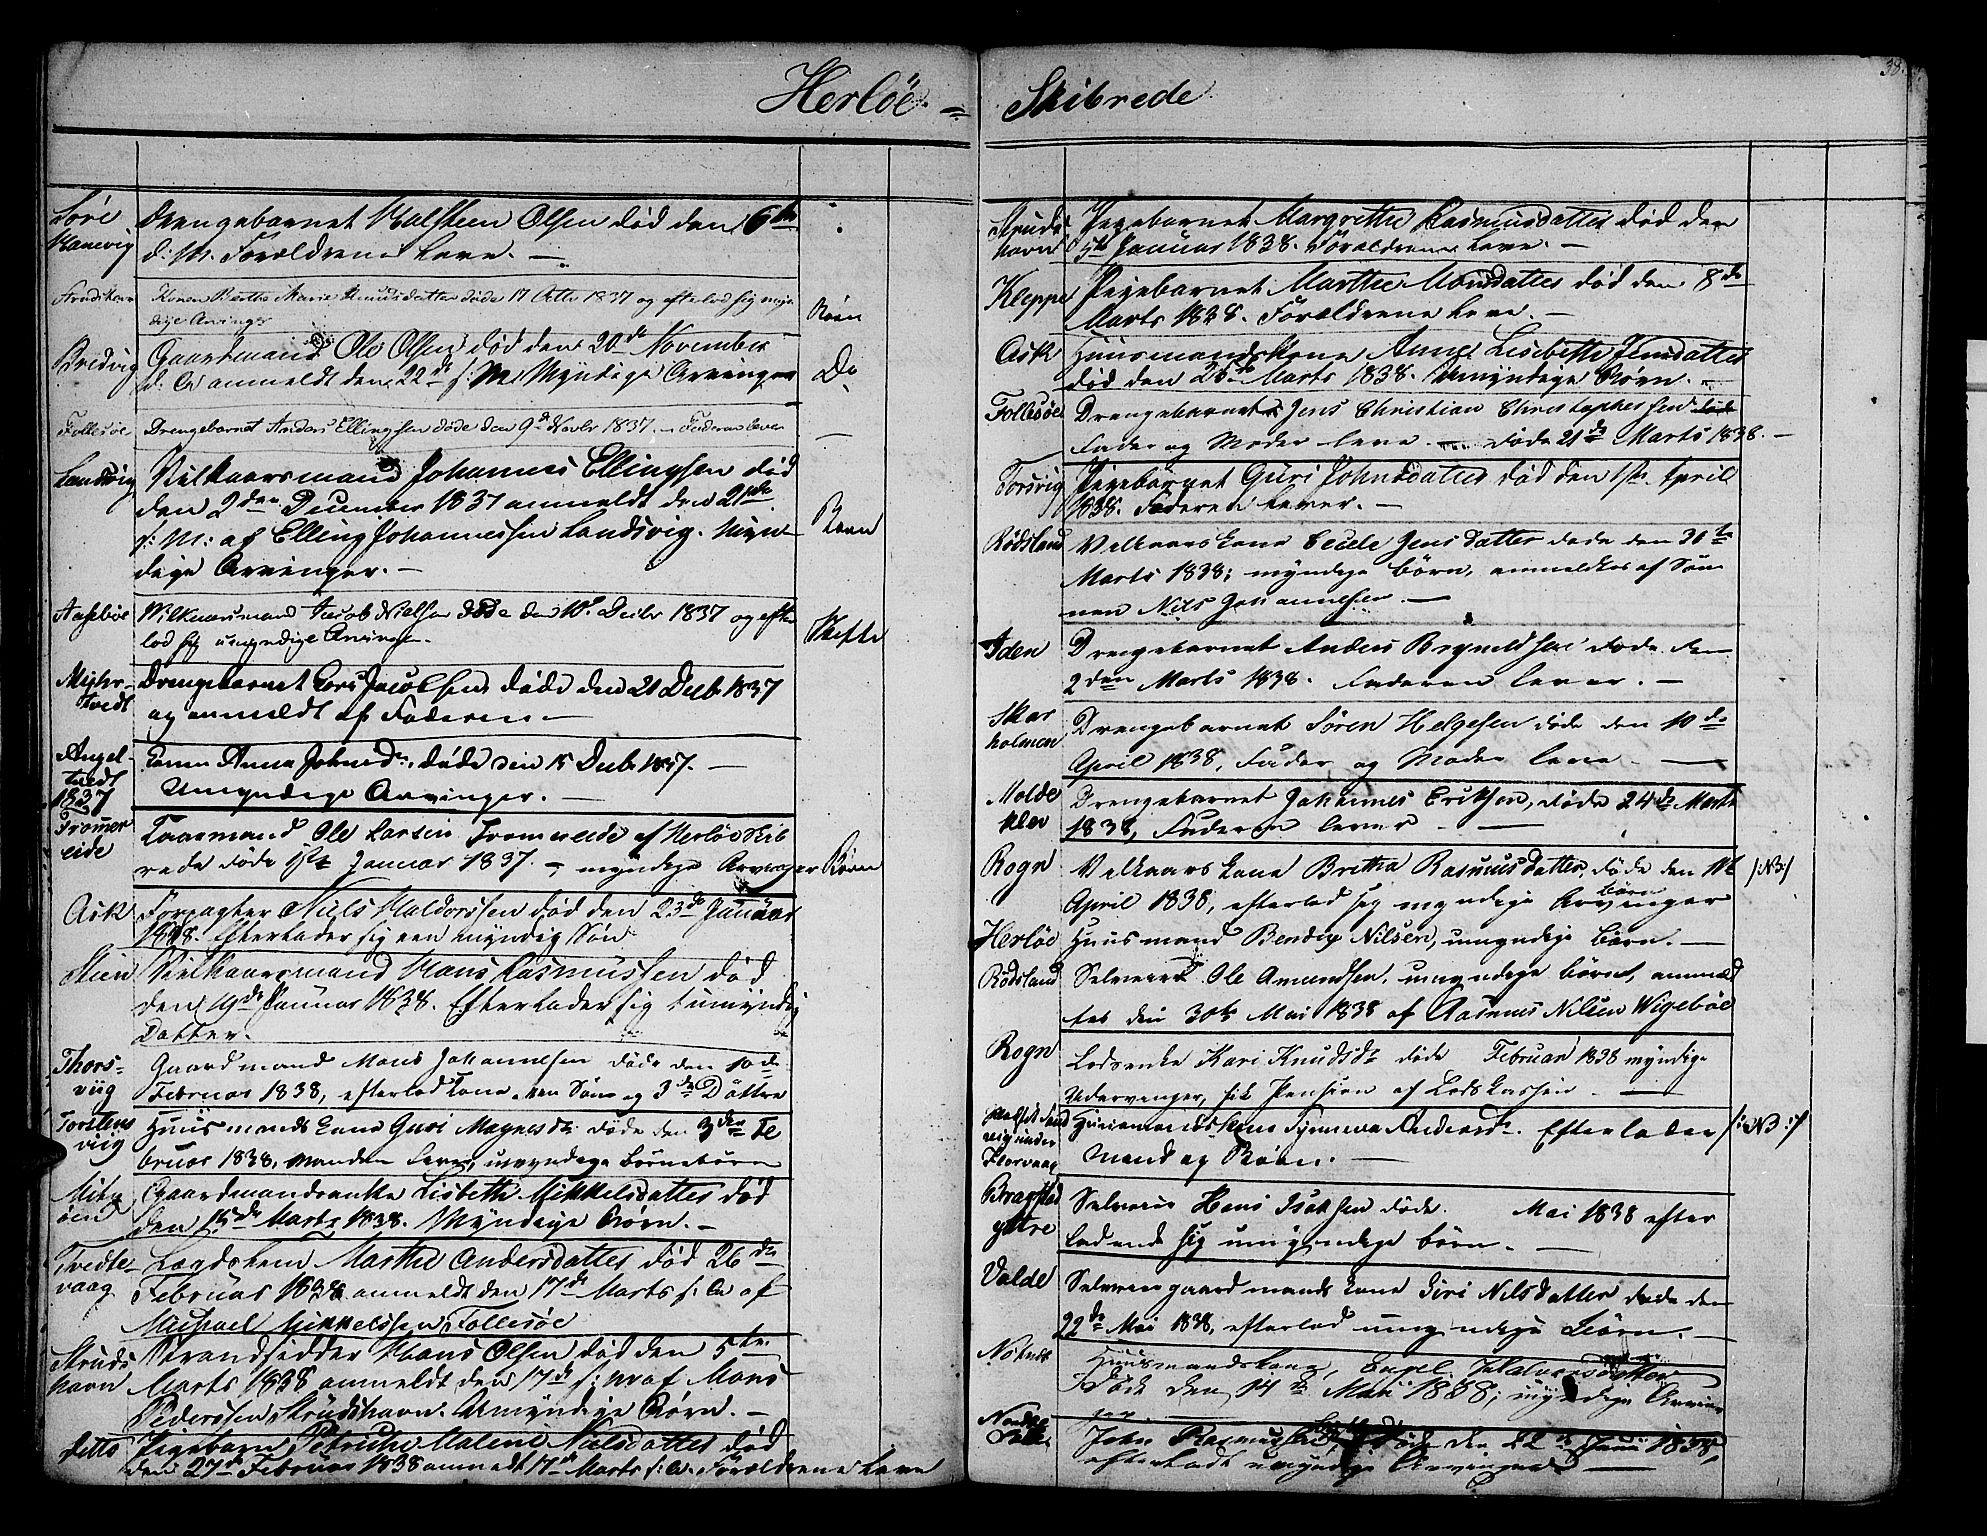 Herlöe =
Drengebarnet Halsteen Olsen død den 6te
d: M. Forældrene leve. —
Konen Berthe Marie Knudsdatter døde 17 Octb 1837 og efterlod sig myn
dige Arvinger
Börn
Bredvig
Gaardmand Ole Olsen død den 20de November
d: A anmeldt den 22de s: M Myndige Arvinger
Do
Follesöe
Drengebarnet Anders Ellingsen døde den 9de Novbr 1837. — Faderen lever
—
Landsvig
Vilkaarsmand Johannes Ellingsen død
den 2den December 1837 anmeldt den 21de
s: M: af Elling Johannessen Landsvig. Myn-
dige Arvinger. —
Börn
Vilkaarsmand Jacob Nielsen døde den 10de Decbr 1837 og efter
lod sig umyndige Arvinger.
Skifte
tvedt
Drengebarnet Lars Jacobsen døde den 21 Decb 1837
og anmeldt af Faderen —
Angel-
tvedt
1837
Konen Anna Johnsd. døde den 15 Decb 1837. —
Umyndige Arvinger. —
Tromer
eide
Ole Larsen Fromreide af Herlöe Skib
rede døde 1ste Januar 1837. — myndige Arvinger
Börn
Ask
Forpagter Niels Haldorssen død den 23de Januar
1838. Efterlader sig een myndig Søn
Vilkaarsmand Hans Rasmussen død
den 19de Januar 1838. Efterlader sig 1 umyndig
Datter.
Thors-
viig
Gaardmand Mons Johannesen døde den 10de
Februar 1838, efterlod Kone, een Søn og 3de Döttre
Torstens
viig
Huusmandskone Guri Magnesdr døde den 3den Fe
bruar 1838, Manden lever, umyndige Børnebörn
Gaardmandsenke Lisbeth Mikkelsdatter død
den 15de Marts 1838. Myndige Börn. —
Tvedte-
vaag
Lægdslem Marthe Andersdatter død 26de
Februar 1838 anmeldt den 17de Marts s: A af
Michael Mikkelssen Follesöe
Struds
havn
Strandsidder Hans Olsen død den 5te
Marts 1838 anmeldt den 17de s: M af Mons
Pederssen Strudshavn. Umyndige Börn. —
ditto
Pigebarn Petriche Malene Nielsdatter død
den 27de Februar 1838 anmeldt 17de Marts s: A. Forældrene leve
38.
Skibrede
Struds
havn
Pigebarnet Margrethe Rasmusdatter død den
5te Januar 1838. Forældrene leve. —
Kleppe
Pigebarnet Marthe Monsdatter død den 8de
Marts 1838. Forældrene leve. —
Ask
Huusmandskone Anne Lisbeth Jensdatter
død den 25de Marts 1838. Umyndige Börn. —
Follesöe
Drengebarnet Jens Christian Christophersen døde
Fader og Moder leve. — døde 21de Marts 1838. —
Torsvig
Pigebarnet Guri Johnsdatter død den 1ste April
1838. Faderen lever. —
Rödsland
Vilkaarskone Cecele Jensdatter døde den 31te
Marts 1838; myndige börn, anmeldtes af Søn
nen Nils Johannesen. —
Iden
Drengebarnet Anders Brynildsen døde den
2den Marts 1838. Faderen lever. —
Skar
holmen
Drengebarnet Sören Helgesen døde den 10de
April 1838, Fader og Moder leve. —
Molde
klev
Drengebarnet Johannes Eriksen, døde 24de Marts
1838, Faderen lever. —
Rogn
Vilkaarskone Bretha Rasmusdatter, døde den 11te
April 1838, efterlod sig myndige Arvinger börn
/:NB:/
Herlöe
Huusmand Bendix Nilsen, umyndige börn. —
Rödsland
Selveier Ole Amundsen, umyndige börn, anmeld
tes den 30te Mai 1838 af Rasmus Nilsen Wigeböe
Rogn
Lodsenke Kari Knudsdr døde Februar 1838 myndige
Udarvinger, fik Pension af Lodskassen. —
vig under
Florvaag
Huusmandskone Synneva Andersdr. Efterlader
Mand og Börn. —
/:NB:/
Bragstad
ytre
Selveier Hans Isaksen døde Mai 1838 efter
ladende sig umyndige börn. —
Valde
Selveiergaardmandskone Siri Nilsdatter døde den
22de Mai 1838, efterlod umyndige Börn. —
Huusmandskone, Engel Halvorsdatter
døde den 14de Mai 1838; myndige Arvin
ger. —
John Rasmussen døde den 22de Juni 1838,
efterladt umyndige Arvinger —